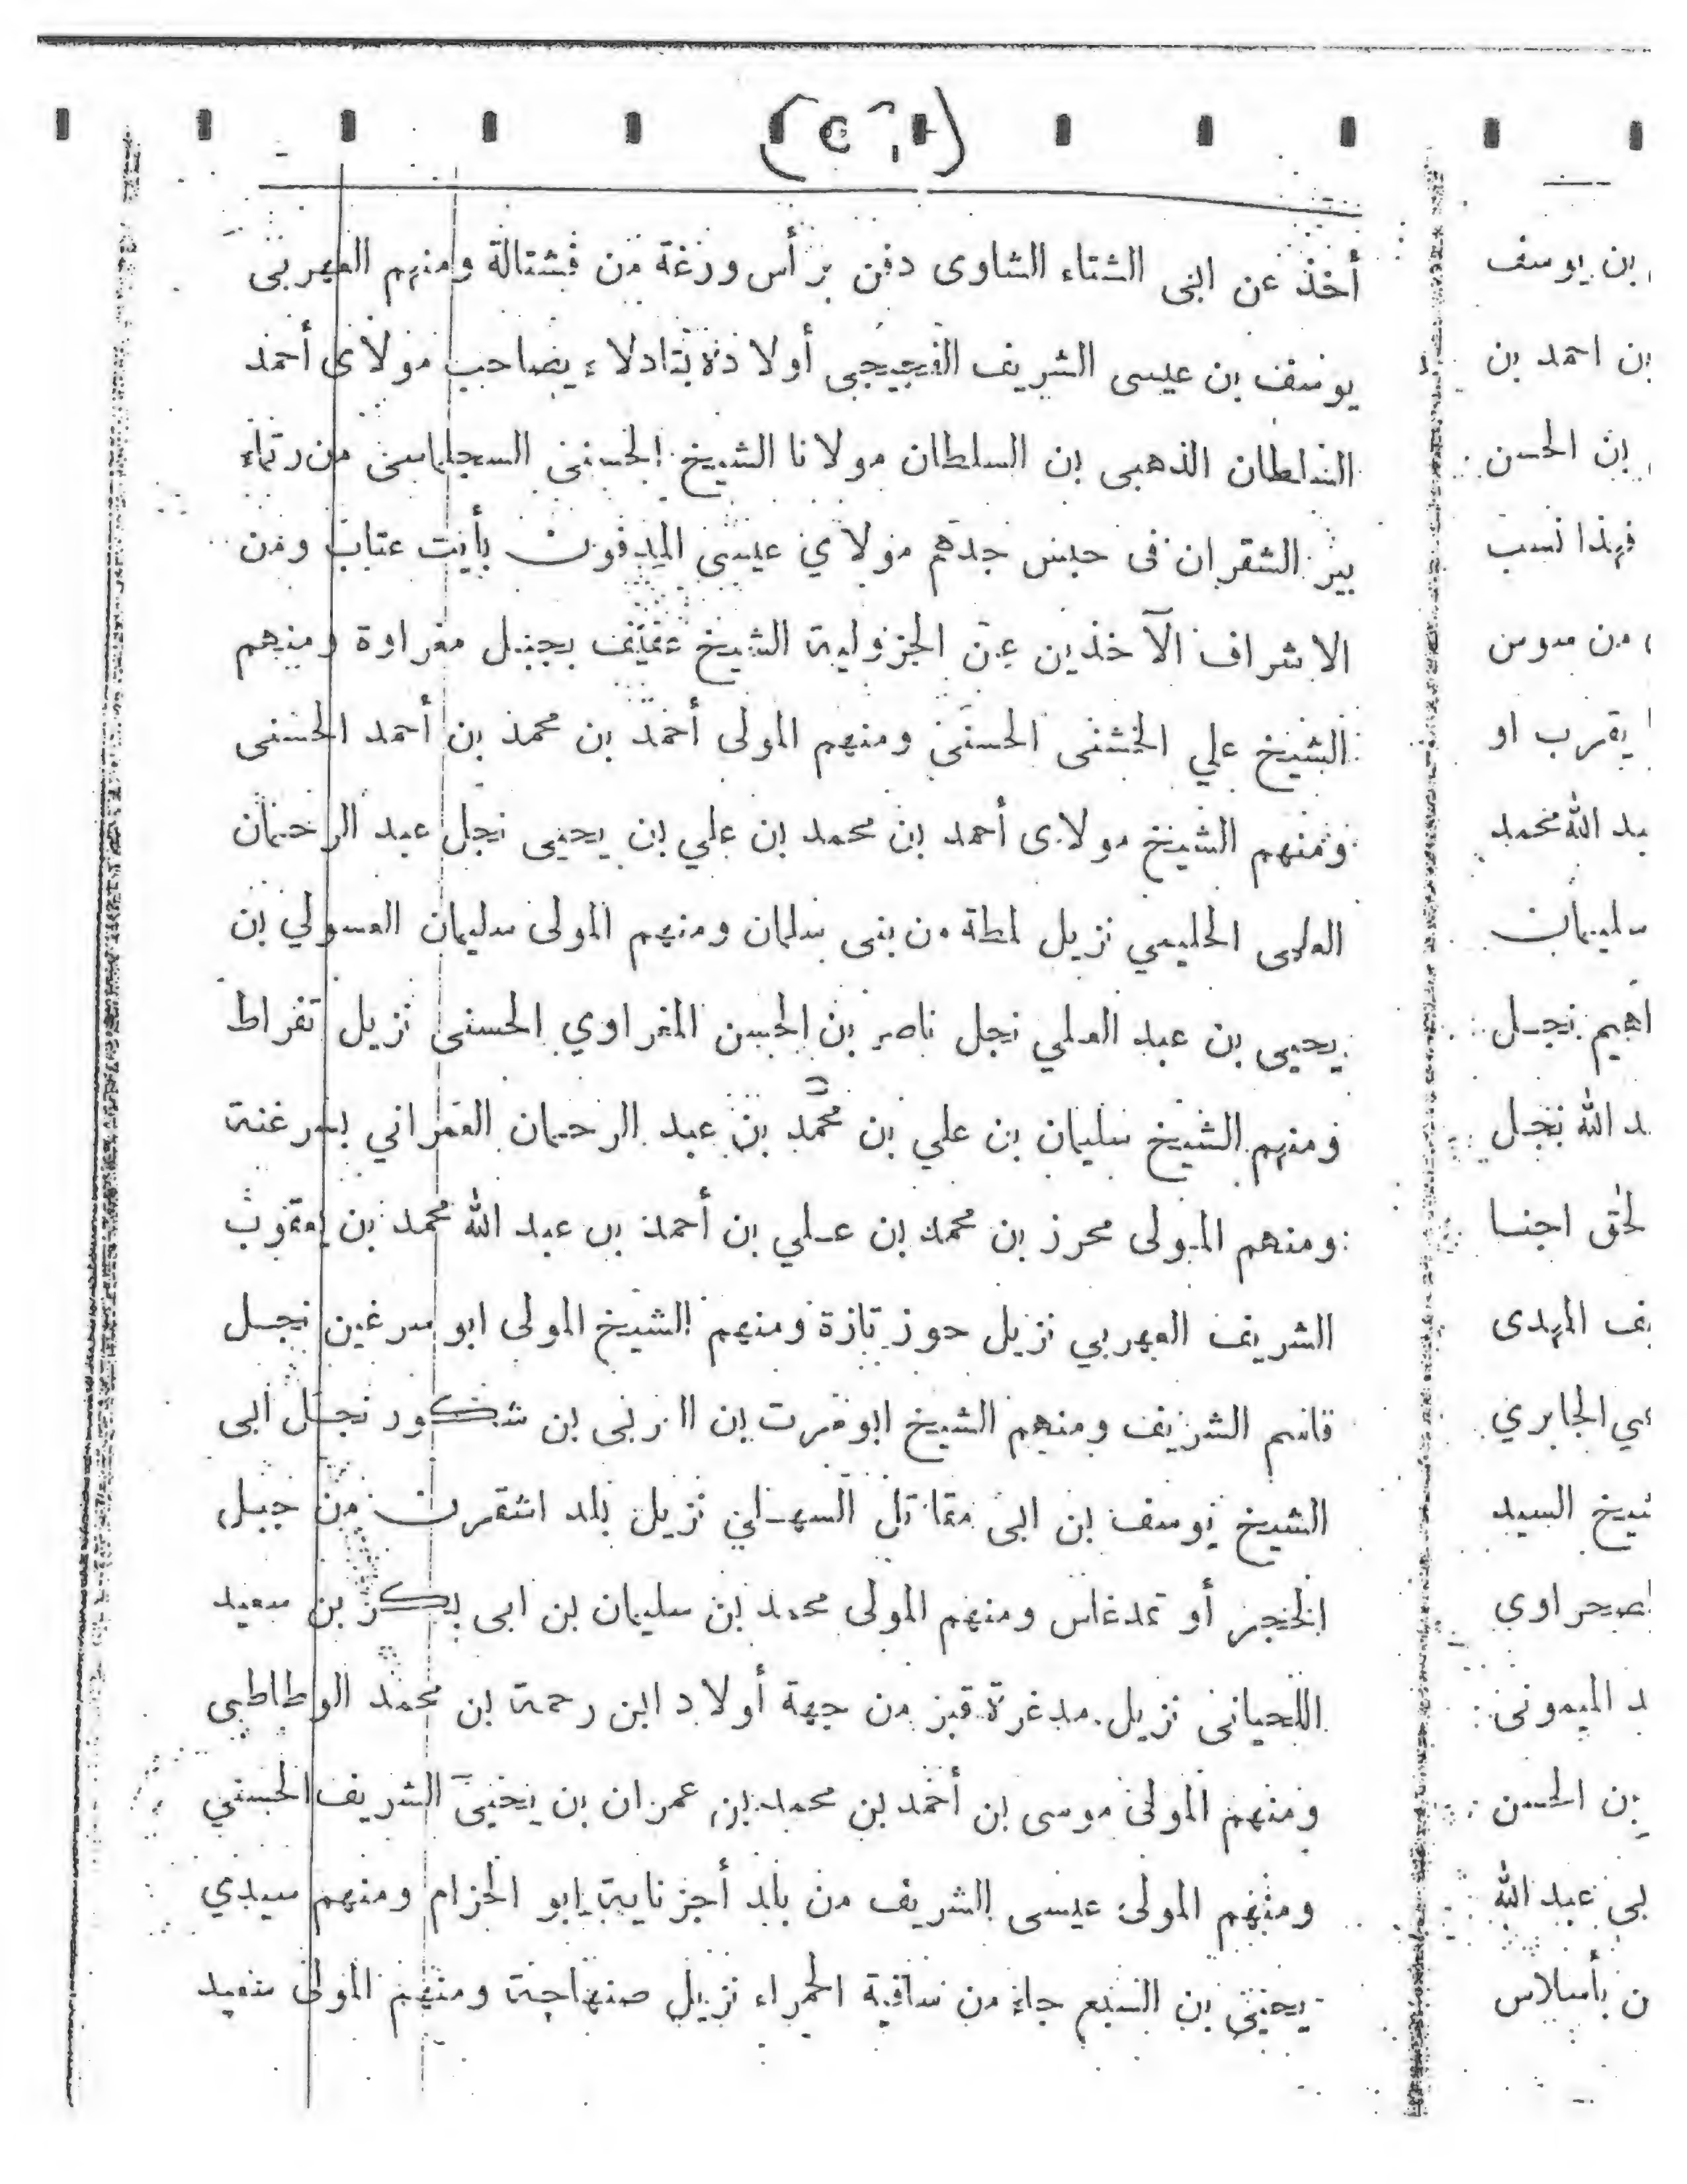 أخذ عن ابى الشتاء الشاوى دفن برأس ورغة من فشتالة ومنهم العهربى
يوسف بن عيسى الشريف الفجيجى أولاده بتادلاء يصاحب مولاى أحمد
السلطان الذهبى بن السلطان مولانا الشيخ الحسنى السجلماسى من
بير الشقران فى حبس جدهم مولاي عيسى المدفون بأيت عتاب ومن
الاشراف الآخذين عن الجزولية الشيخ عفيف بجبل مغراوة ومنهم
الشيخ علي الخشنى الحسنى ومنهم المولى أحمد بن محمد بن أحمد الحسنى
ومنهم الشيخ مولاى أحمد بن محمد بن علي بن يحيى نجل عبد الرحمان
العلمى الحليمي نزيل لمطة من بنى سلمان ومنهم المولى سليمان العسولي بن
يحيى بن عبد العلي نجل ناصر بن الحسن المغراوي الحسنى نزيل تفراط
ومنهم الشيخ سليمان بن علي بن محمد بن عبد الرحمان العمراني
ومنهم المولى محرز بن محمد بن علي بن أحمد بن عبد الله محمد بن يعقوب
الشريف العهربي نزيل حوز تازة ومنهم الشيخ المولى ابو سرغين نجل
قاسم الشريف ومنهم الشيخ بن بن شكور نجل ابى
الشيخ يوسف بن ابى مقاتل السهلي نزيل بلد اشقرن من جبل
الخنجر أو تمدغاس ومنهم المولى محمد بن سليمان بن ابى بكر بن سعيد
اللحيانى نزيل مدغرة قبز من جهة أولاد ابن رحمة بن محمد الوطاطى
ومنهم المولى موسى بن أحمد بن محمد بن عمران بن يحيى الشريف الحسني
ومنهم المولى عيسى الشريف من بلد أجزناية ابو الحزام ومنهم سيدي
يحيى بن السبع جاء من ساقية الحمراء نزيل صنهاجة ومنهم المولى سعيد
بن يوسف
بن احمد بن
بن الحسن
فهذا نسب
من سوس
يقرب او
بد الله محمد
سليمان
اهيم نجل
د الله نجل
لحق اجنا
يف المهدى
مي الجابري
شيخ السيد
لصحراوي
د الميمونى
بن الحسن
بى عبد الله
ن بأسلاس